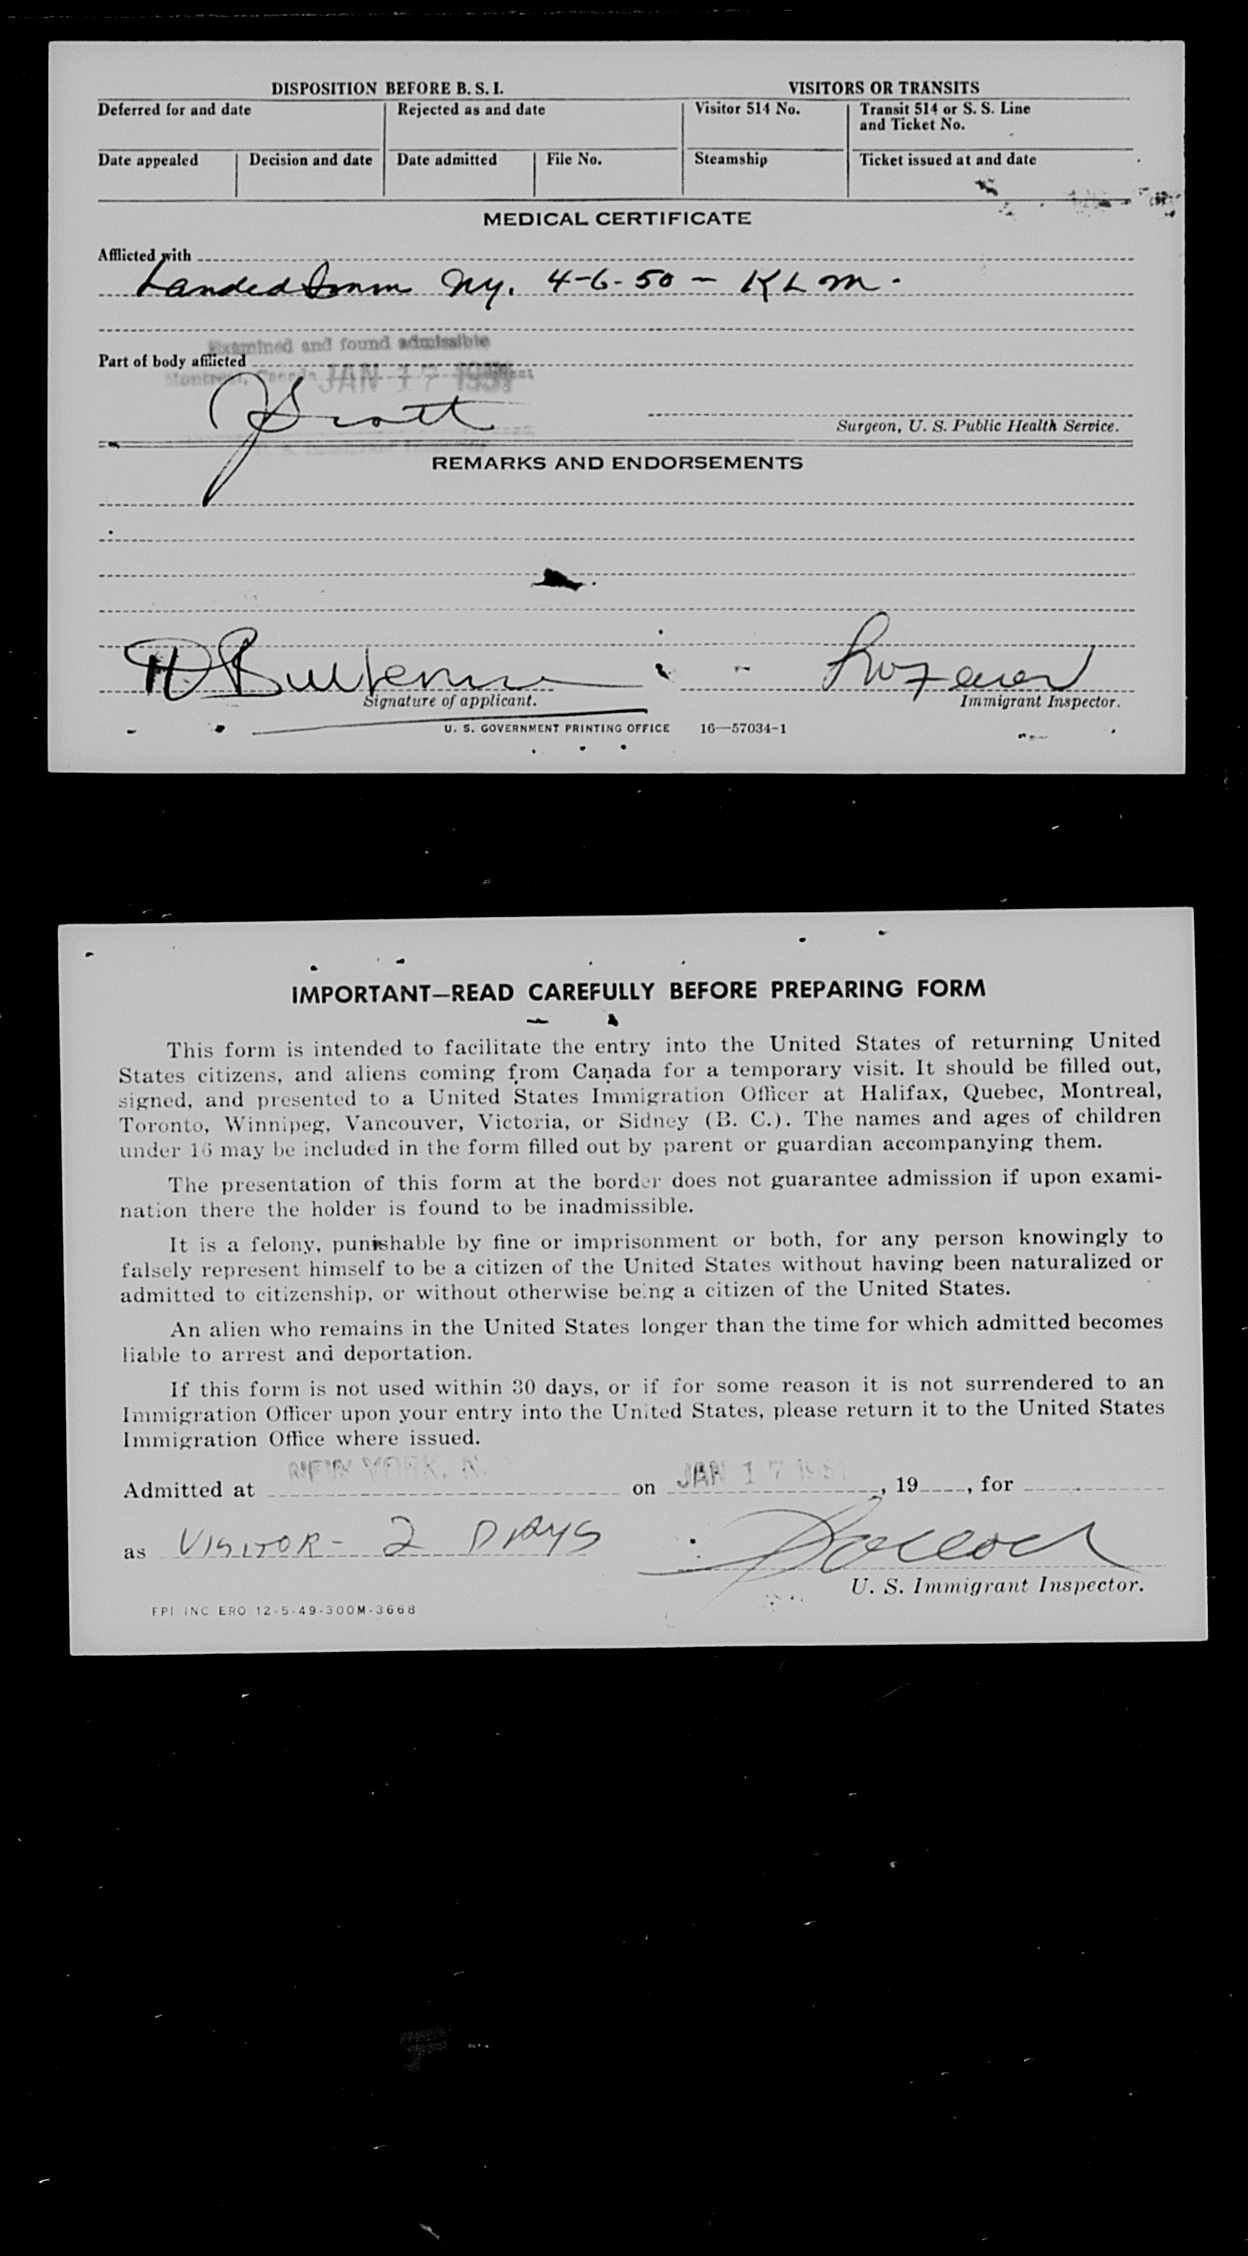 DISPOSITION BEFORE B. S. I. VISITORS OR TRANSITS
Deferred for and date Rejected as and date Visitor 514 No. Transit 514 or S. S. Line
and Ticket No.
Date appealed Decision and date Date admitted File No. Steamship Ticket issued at and date
MEDICAL CERTIFICATE
Afflicted with
Landed Imm Ny. 4-6-50 - KLM.
Examined and found admissible
Part of body afflicted
Montreal, Canada JAN 17 1951
Surgeon, U. S. Public Health Service.
REMARKS AND ENDORSEMENTS
Signature of applicant. Immigrant Inspector.
U. S. GOVERNMENT PRINTING OFFICE 16—57034-1
IMPORTANT—READ CAREFULLY BEFORE PREPARING FORM
This form is intended to facilitate the entry into the United States of returning United
States citizens, and aliens coming from Canada for a temporary visit. It should be filled out,
signed, and presented to a United States Immigration Officer at Halifax, Quebec, Montreal,
Toronto, Winnipeg, Vancouver, Victoria, or Sidney (B. C.). The names and ages of children
under 16 may be included in the form filled out by parent or guardian accompanying them.
The presentation of this form at the border does not guarantee admission if upon exami-
nation there the holder is found to be inadmissible.
It is a felony, punishable by fine or imprisonment or both, for any person knowingly to
falsely represent himself to be a citizen of the United States without having been naturalized or
admitted to citizenship, or without otherwise being a citizen of the United States.
An alien who remains in the United States longer than the time for which admitted becomes
liable to arrest and deportation.
If this form is not used within 30 days, or if for some reason it is not surrendered to an
Immigration Officer upon your entry into the United States, please return it to the United States
Immigration Office where issued.
Admitted at NEW YORK, N. on JAN 17 1951, 19__, for
as VISITOR - 2 DAYS
U. S. Immigrant Inspector.
FPI INC ERO 12-5-49-300M-3668